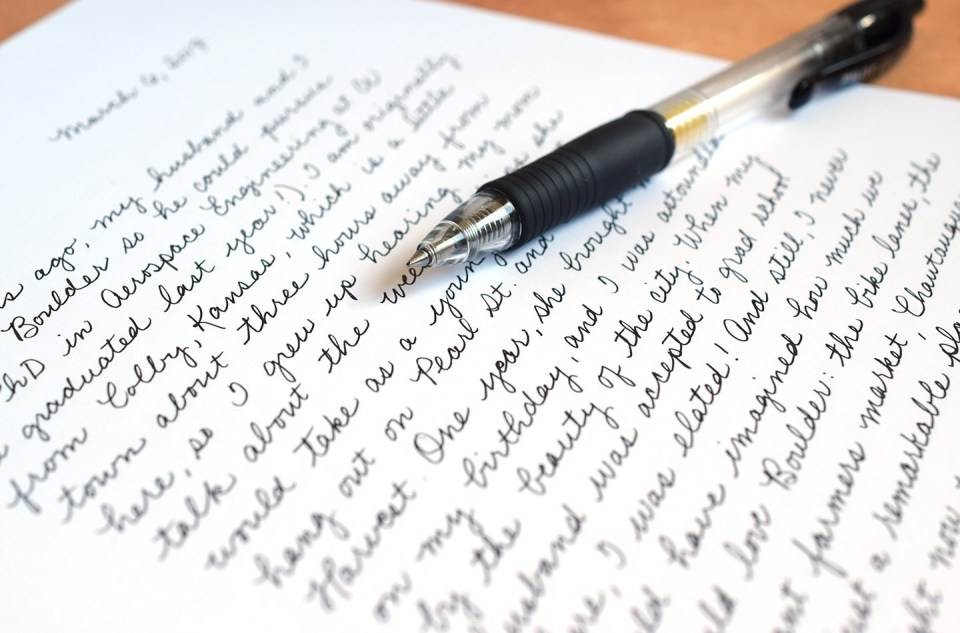 March 6, 2017
ago, my husband and I
Boulder so he could pursue
PhD in Aerospace Engineering at
graduated last year!). I am originally
from Colby, Kansas, which is a little
town about three hours away from
here, so I grew up hearing my mom
talk about the she
would take as a young
hang out on Pearl St. and
Harvest. One year, she brought
on my birthday, and I was astounded
by the beauty of the city. When my
husband was accepted to grad school
I was elated! And still, I never
have imagined how much we
love Boulder: the bike lanes, the
farmers market, Chautauqua
a remarkable
now